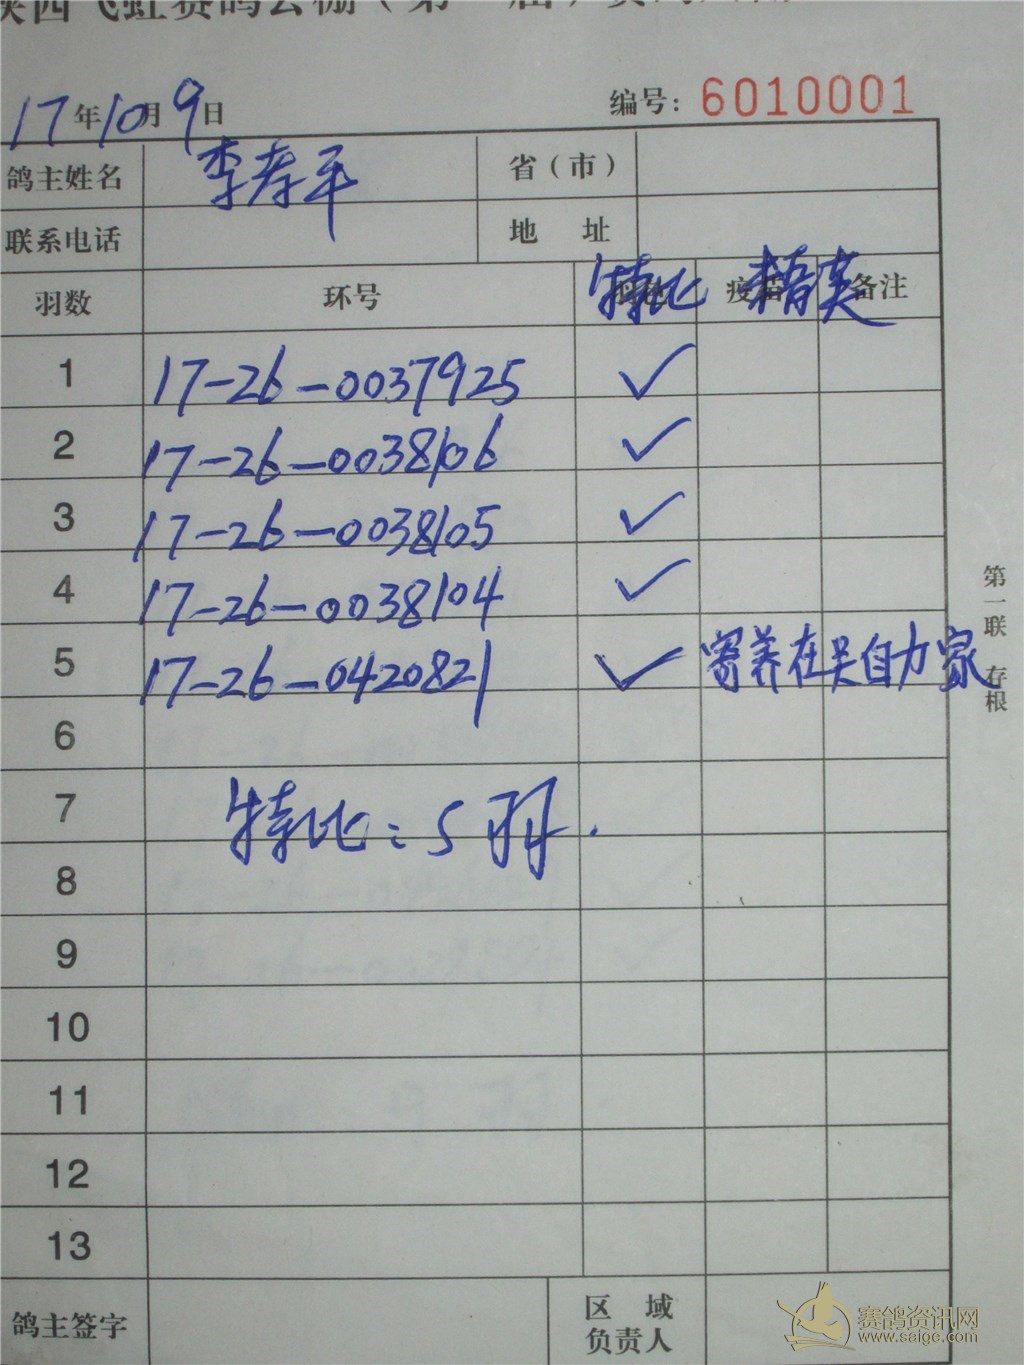 陕西飞虹赛鸽公棚（第 届）
17年10月9日 编号: 6010001
鸽主姓名 李孝平 省（市）
联系电话 地 址
羽数 环号 特比 疫苗 备注
1 17-26-0037925 ✓
2 17-26-0038106 ✓
3 17-26-0038105 ✓
4 17-26-0038104 ✓
5 17-26-0420821 ✓ 寄养在吴自力家
6
7 特比：5羽.
8
9
10
11
12
13
鸽主签字 区 域
负责人
第一联 存根
赛鸽资讯网
www.saige.com